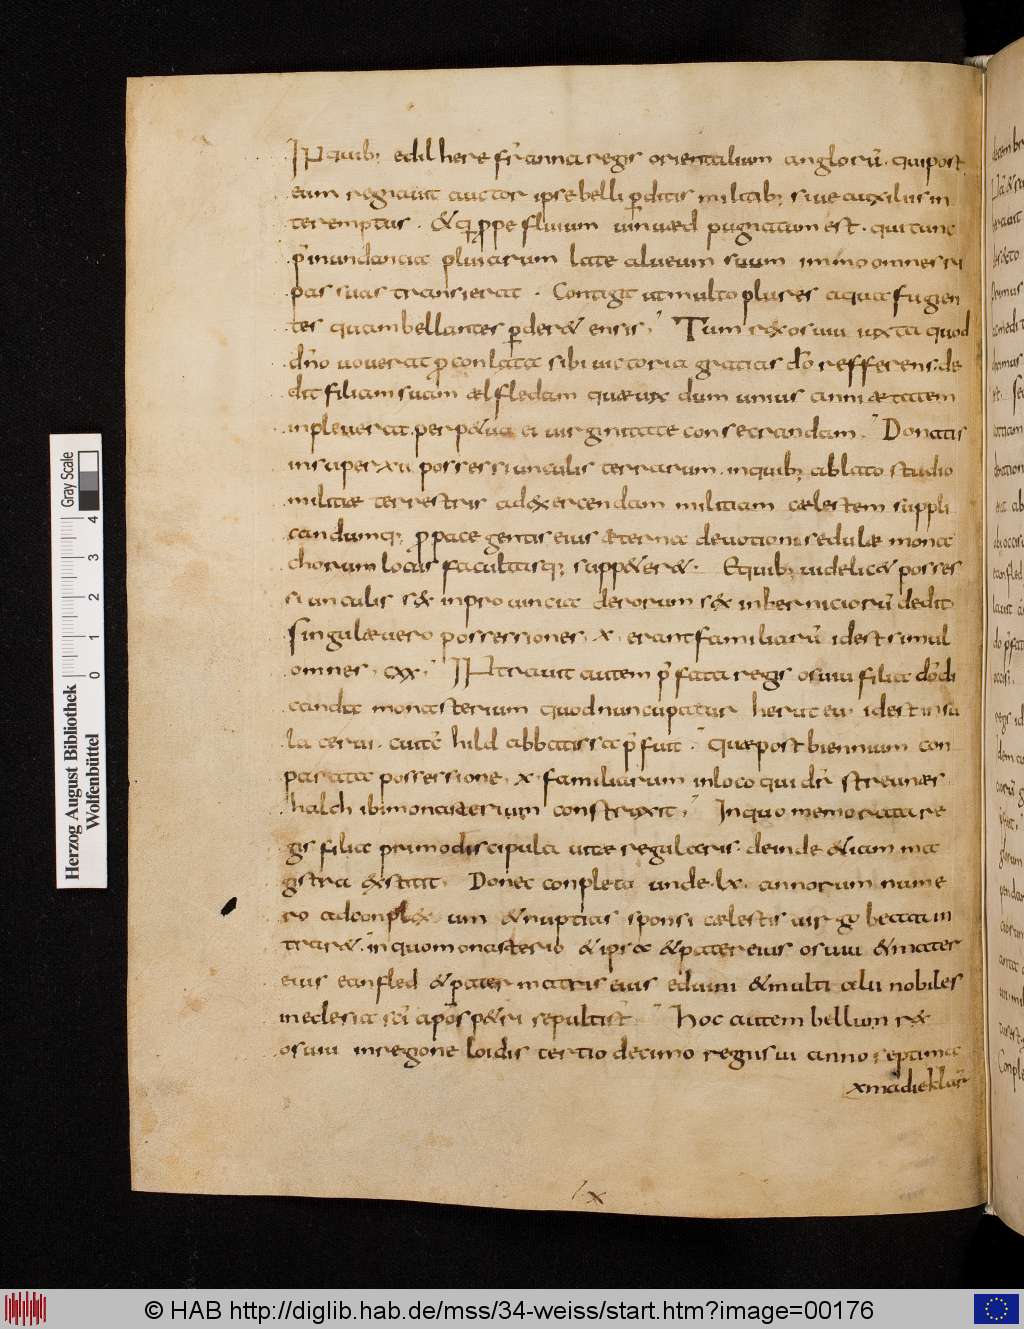 IN quib; edilhere fr̄ anna regis orientalium anglorū. qui post
eum regnauit auctor ipse belli p̱ditis militib; siue auxiliis in
teremptus. & q̄ p̱pe fluuium uinuæd pugnatum est. qui tunc
p̄ inundancia pluuiarum late alueum suum immo omnes ri
pas suas transierat. Contigit ut multo plures aqua fugien
tes quam bellantes p̱der& ensis; Tum rex osuiu iuxta quod
dn̄o uouerat p̱ conlata sibi uictoria gratias dō refferens; de
dit filiam suam ælfledam quæ uix dum unius anni ætatem
inpleuerat. perp&ua ei uirginitate consecrandam. Donatis
insuper xii possessiunculis terrarum. in quib; ablato studio
militiæ terrestris ad exercendam militiam cælestem suppli
candumq; p̱ pace gentis eius æterna deuotioni sedulæ mona
chorum locus facultasq; supp&er&. E quib; uidelic& posses
siunculis sex in prouincia derorum sex in berniciorū dedit
singulæ uero possessiones. x. erant familiarū id est simul
omnes. cxx; INtrauit autem p̄fata regis osuiu filia dō di
canda monasterium quod nuncupatur heruteu. id est insu
la cerui. cui tc̄ hild abbatissa p̄fuit. quæ post biennium con
parata possessione. x. familiarum in loco qui dr̄ streunæs
halch ibi monasterium construxit; In quo memorata re
gis filia primo discipula uitæ regularis. deinde &iam ma
gistra extitit. Donec conpleto unde. lx. annorum nume
ro ad conplex um &nuptias sponsi cælestis uirgo beata in
trar&. in quo monasterio &ipsa &pater eius osuiu &mater
eius eanfled &pater matris eius eduini &multi alii nobiles
in eclesia sc̄i apōs p&ri sepulti st̄. Hoc autem bellum rex
osuiu in regione loidis tertio decimo regni sui anno septima
x ma die kl̄ar
Herzog August Bibliothek
Wolfenbüttel
Gray Scale
0 1 2 3 4
© HAB http://diglib.hab.de/mss/34-weiss/start.htm?image=00176